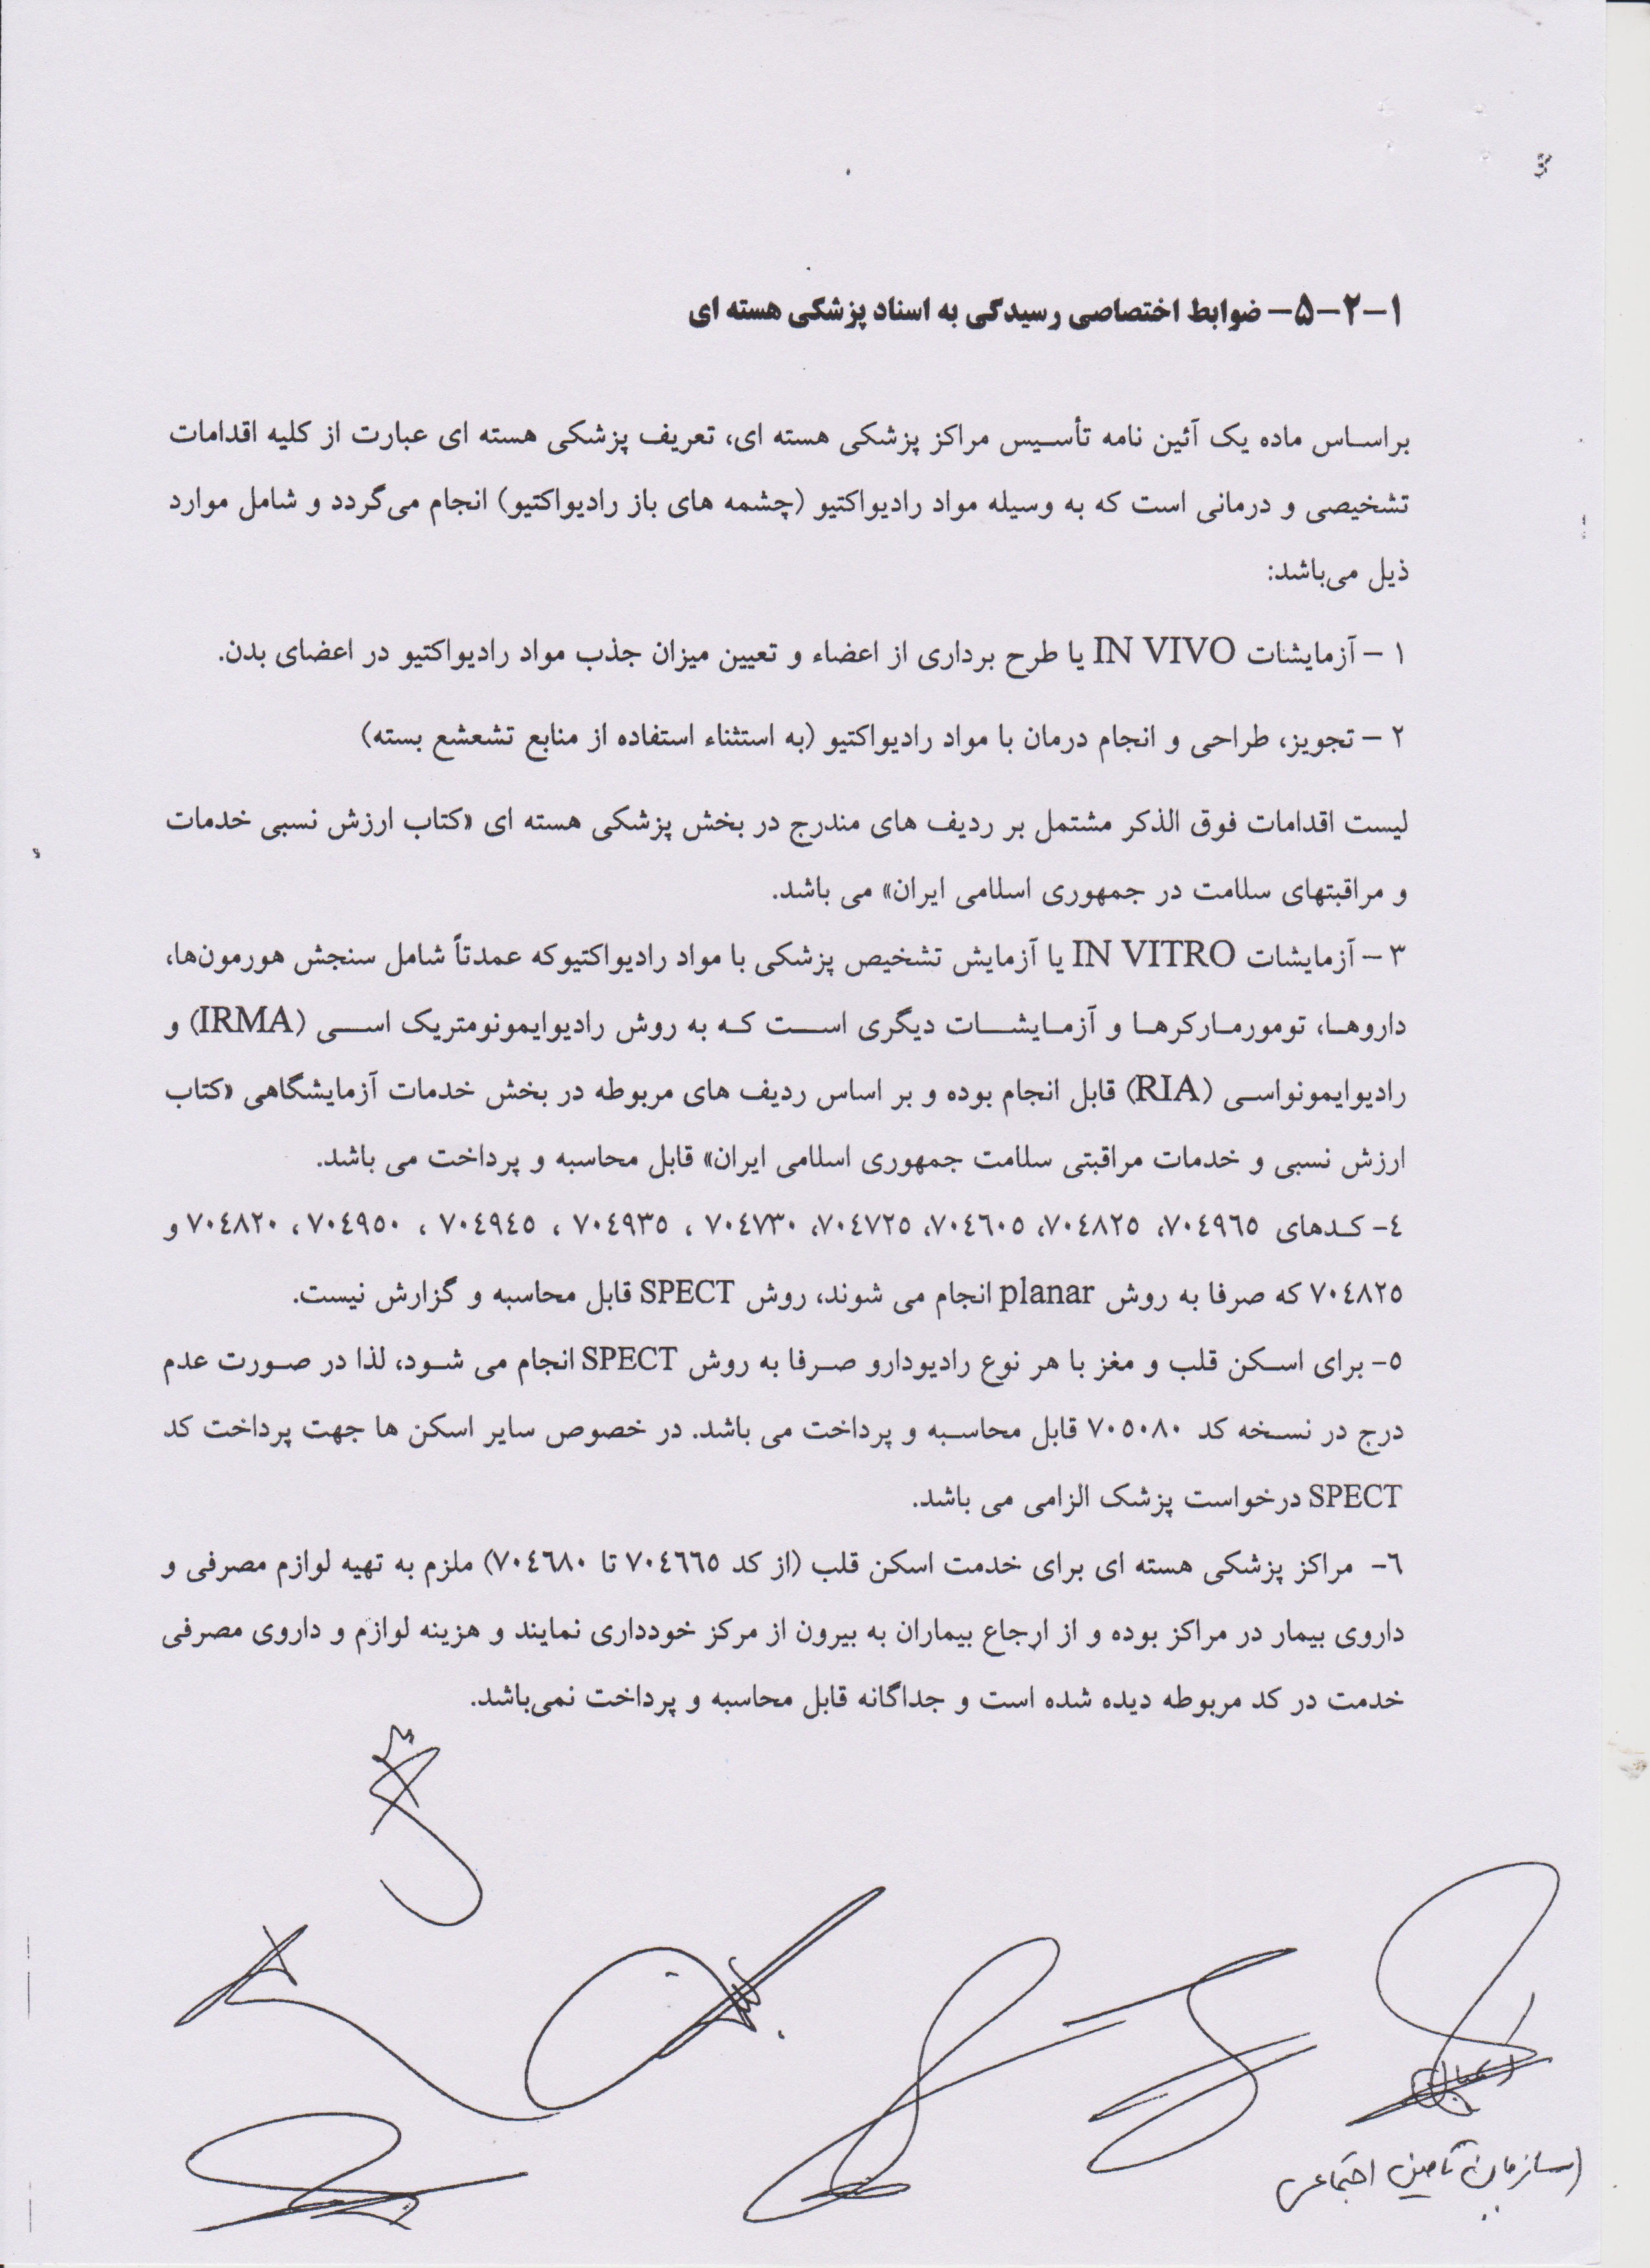 ۱-۲-۵- ضوابط اختصاصی رسیدگی به اسناد پزشکی هسته ای
براساس ماده یک آئین نامه تأسیس مراکز پزشکی هسته ای، تعریف پزشکی هسته ای عبارت از کلیه اقدامات
تشخیصی و درمانی است که به وسیله مواد رادیواکتیو (چشمه های باز رادیواکتیو) انجام می‌گردد و شامل موارد
ذیل می‌باشد:
۱ – آزمایشات IN VIVO یا طرح برداری از اعضاء و تعیین میزان جذب مواد رادیواکتیو در اعضای بدن.
۲ – تجویز، طراحی و انجام درمان با مواد رادیواکتیو (به استثناء استفاده از منابع تشعشع بسته)
لیست اقدامات فوق الذکر مشتمل بر ردیف های مندرج در بخش پزشکی هسته ای «کتاب ارزش نسبی خدمات
و مراقبتهای سلامت در جمهوری اسلامی ایران» می باشد.
۳ – آزمایشات IN VITRO یا آزمایش تشخیص پزشکی با مواد رادیواکتیوکه عمدتاً شامل سنجش هورمون‌ها،
داروها، تومورمارکرها و آزمایشات دیگری است که به روش رادیوایمونومتریک اسی (IRMA) و
رادیوایمونواسی (RIA) قابل انجام بوده و بر اساس ردیف های مربوطه در بخش خدمات آزمایشگاهی «کتاب
ارزش نسبی و خدمات مراقبتی سلامت جمهوری اسلامی ایران» قابل محاسبه و پرداخت می باشد.
٤- کدهای ۷۰٤۹٦٥، ۷۰٤۸۲٥، ۷۰٤٦۰٥، ۷۰٤۷۲٥، ۷۰٤۷۳۰ ، ۷۰٤۹۳٥ ، ۷۰٤۹٤٥ ، ۷۰٤۹٥۰ ، ۷۰٤۸۲۰ و
۷۰٤۸۲٥ که صرفا به روش planar انجام می شوند، روش SPECT قابل محاسبه و گزارش نیست.
٥- برای اسکن قلب و مغز با هر نوع رادیودارو صرفا به روش SPECT انجام می شود، لذا در صورت عدم
درج در نسخه کد ۷۰٥۰۸۰ قابل محاسبه و پرداخت می باشد. در خصوص سایر اسکن ها جهت پرداخت کد
SPECT درخواست پزشک الزامی می باشد.
٦- مراکز پزشکی هسته ای برای خدمت اسکن قلب (از کد ۷۰٤٦٦٥ تا ۷۰٤٦۸۰) ملزم به تهیه لوازم مصرفی و
داروی بیمار در مراکز بوده و از ارجاع بیماران به بیرون از مرکز خودداری نمایند و هزینه لوازم و داروی مصرفی
خدمت در کد مربوطه دیده شده است و جداگانه قابل محاسبه و پرداخت نمی‌باشد.
سازمان تامین اجتماعی